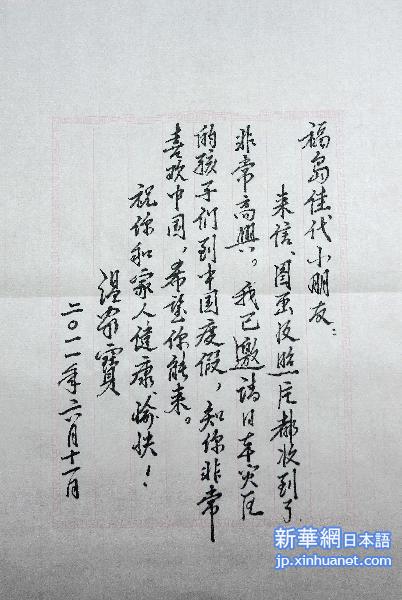 福島佳代小朋友：
来信、图画及照片都收到了，
非常高興。我已邀請日本灾区
的孩子们到中国度假，知你非常
喜欢中国，希望你能来。
祝你和家人健康愉快！
温家寶
二〇一一年六月十一日
新華網日本語
jp.xinhuanet.com